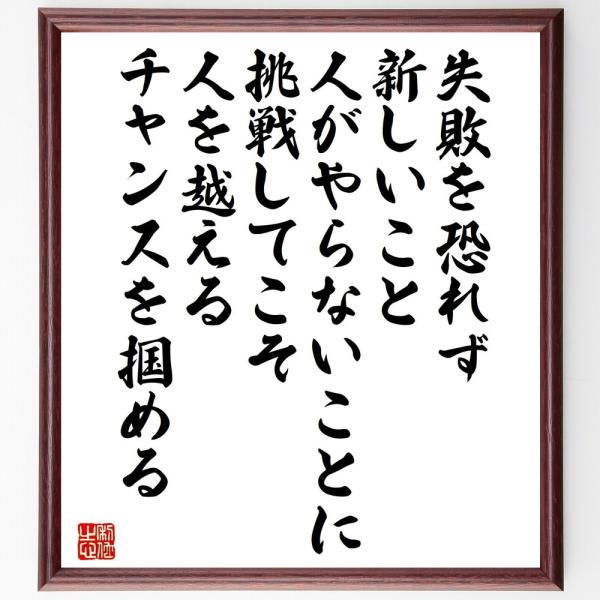 失敗を恐れず
新しいこと
人がやらないことに
挑戦してこそ
人を越える
チャンスを掴める